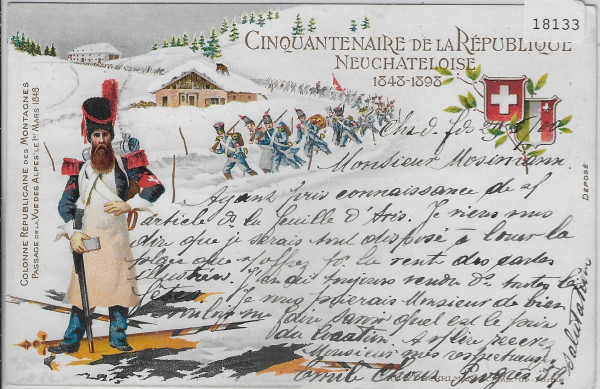 18133
CINQUANTENAIRE DE LA RÉPUBLIQUE
NEUCHATELOISE
1848-1898
COLONNE RÉPUBLICAINE DES MONTAGNES
PASSAGE DE LA VUE DES ALPES LE 1er MARS 1848
DÉPOSÉ
Ch. d. fds
Monsieur Mosimann.
Ayant pris connaissance de
article de la feuille d'Avis. Je viens vous
dire que je serais tout disposé à louer la
que pr la vente des cartes
illustrées. J'en ai toujours vendu de toutes les
Je vous prierais Monsieur de bien
vouloir me dire savoir quel est le prix
de location.
Monsieur mes respectueuses
Emile Progrès
Salutations